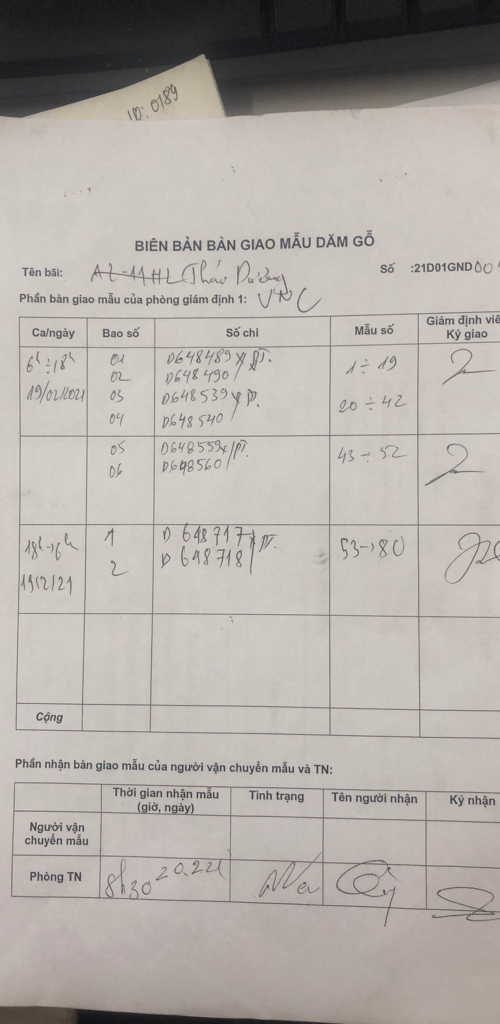 ID: 0189
BIÊN BẢN BÀN GIAO MẪU DĂM GỖ
Tên bãi: Thảo Dương Số :21D01GND00
Phần bàn giao mẫu của phòng giám định 1: VTC
Ca/ngày Bao số Số chì Mẫu số Giám định viê
Ký giao
6h ÷ 18h 01 D648489 1 ÷ 19
02 D648490
19/02/2021 03 D648539 20 ÷ 42
04 D648540
05 D648559 43 ÷ 52
06 D648560
18h→6h 1 D 648717 53→80
2 D 648718
19/2/21
Cộng
Phần nhận bàn giao mẫu của người vận chuyển mẫu và TN:
Thời gian nhận mẫu
(giờ, ngày) Tình trạng Tên người nhận Ký nhận
Người vận
chuyển mẫu
Phòng TN 8h30 20.2.21